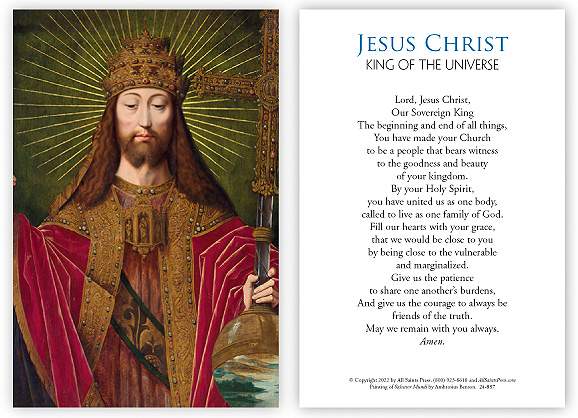 JESUS CHRIST
KING OF THE UNIVERSE
Lord, Jesus Christ,
Our Sovereign King
The beginning and end of all things,
You have made your Church
to be a people that bears witness
to the goodness and beauty
of your kingdom.
By your Holy Spirit,
you have united us as one body,
called to live as one family of God.
Fill our hearts with your grace,
that we would be close to you
by being close to the vulnerable
and marginalized.
Give us the patience
to share one another's burdens,
And give us the courage to always be
friends of the truth.
May we remain with you always.
Amen.
© Copyright 2022 by All Saints Press. (800) 923-8618 and AllSaintsPress.com
Painting of Salvator Mundi by Ambrosius Benson. 24-857